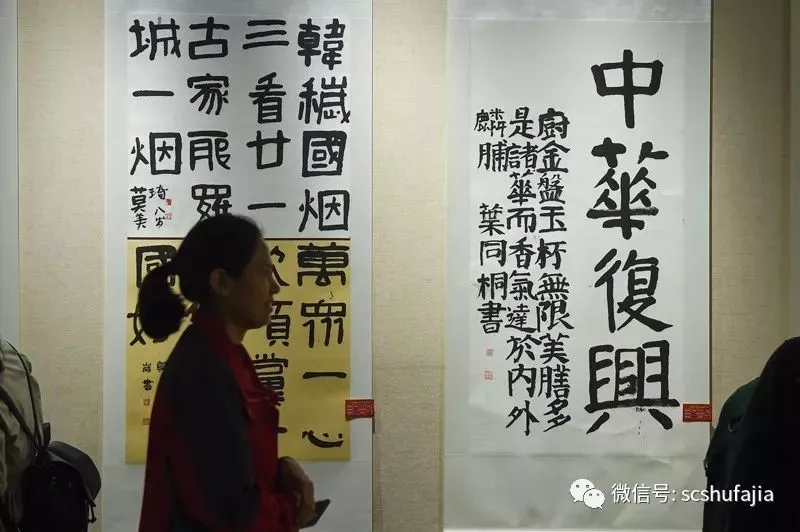 中華復興
廚金盤玉杯無限美膳多
是諸華而香氣達於内外
麟脯 葉同桐書
韓穢國烟
三看廿一
古家耶羅
城一烟
琦八岁
莫美
萬眾一心
頌黨
國
書
微信号: scshufajia